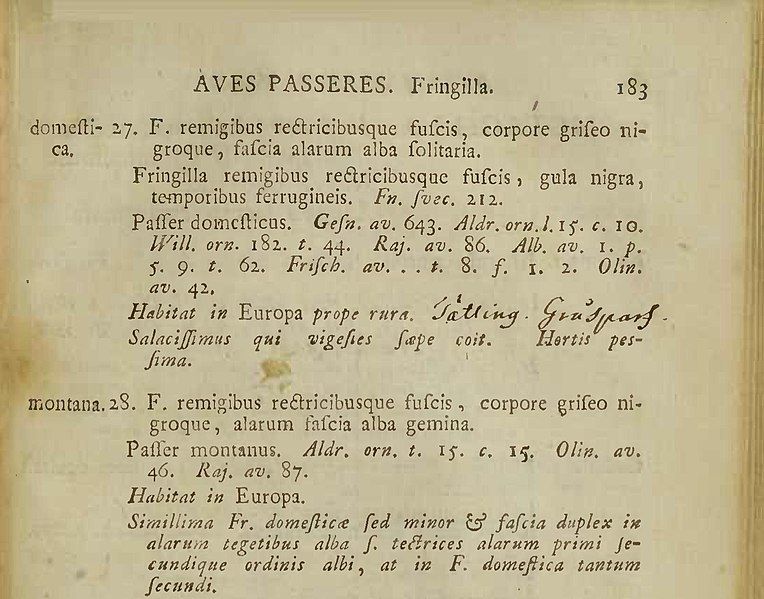 AVES PASSERES. Fringilla. 183
domeſti- 27. F. remigibus rectricibusque fuſcis, corpore griſeo ni-
ca. groque, faſcia alarum alba ſolitaria.
Fringilla remigibus rectricibusque fuſcis, gula nigra,
temporibus ferrugineis. Fn. ſvec. 212.
Paſſer domeſticus. Geſn. av. 643. Aldr. orn. l. 15. c. 10.
Will. orn. 182. t. 44. Raj. av. 86. Alb. av. 1. p.
5. 9. t. 62. Friſch. av. . . t. 8. f. 1. 2. Olin.
av. 42.
Habitat in Europa prope rura. Tätling. Gråsparf.
Salaciſſimus qui vigeſies ſæpe coit. Hortis peſ-
ſima.
montana. 28. F. remigibus rectricibusque fuſcis, corpore griſeo ni-
groque, alarum faſcia alba gemina.
Paſſer montanus. Aldr. orn. t. 15. c. 15. Olin. av.
46. Raj. av. 87.
Habitat in Europa.
Simillima Fr. domeſticæ ſed minor & faſcia duplex in
alarum tegetibus alba ſ. tectrices alarum primi ſe-
cundique ordinis albi, at in F. domeſtica tantum
ſecundi.